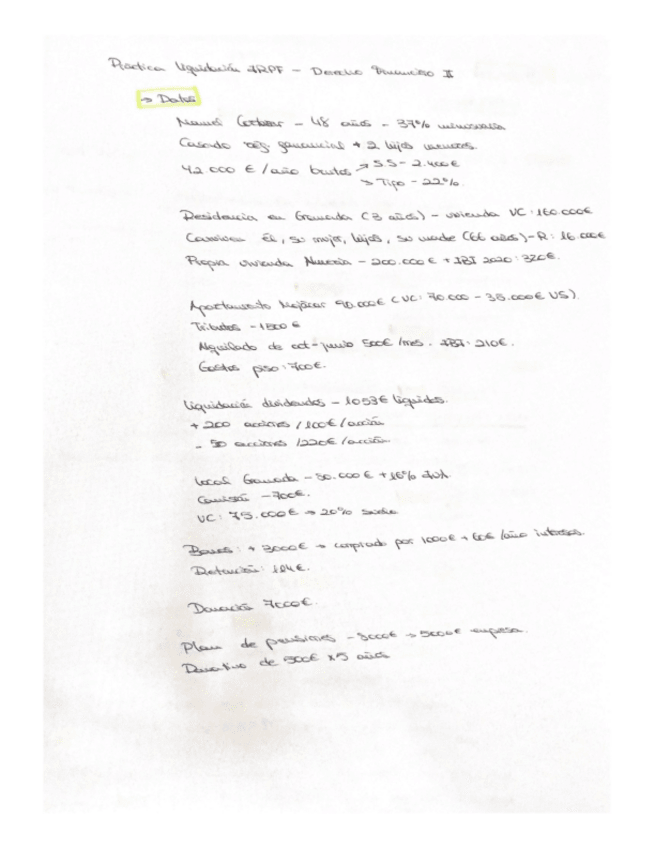 Práctica liquidación IRPF - Derecho Financiero II
→ Datos
Manuel - 48 años - 37% minusvalía
Casado rég. ganancial + 2 hijos menores
42.000 €/año brutos → S.S - 2.400€
→ Tipo - 22%.
Residencia en Granada (3 años) - vivienda VC: 160.000€
Conviven él, su mujer, hijos, su madre (66 años) - R: 16.000€
Propia vivienda Almería - 200.000€ + IBI 2020: 320€.
Apartamento Mojácar 90.000€ (VC: 70.000 - 35.000€ VS).
Tributos - 1800€
Alquilado de oct-junio 500€/mes. IBI: 210€.
Gastos piso: 700€.
Liquidación dividendos - 1053€ líquidos.
+ 200 acciones / 100€/acción
- 50 acciones /220€/acción
Local Granada - 50.000€ + 16% IVA
Comisión - 700€.
VC: 75.000€ → 20% suelo
Bonos: + 3000€ → comprado por 1000€ + 60€/año intereses.
Retención: 114€.
Donación 7000€.
Plan de pensiones - 3000€ → 5000€ empresa.
Donativo de 500€ x 5 años